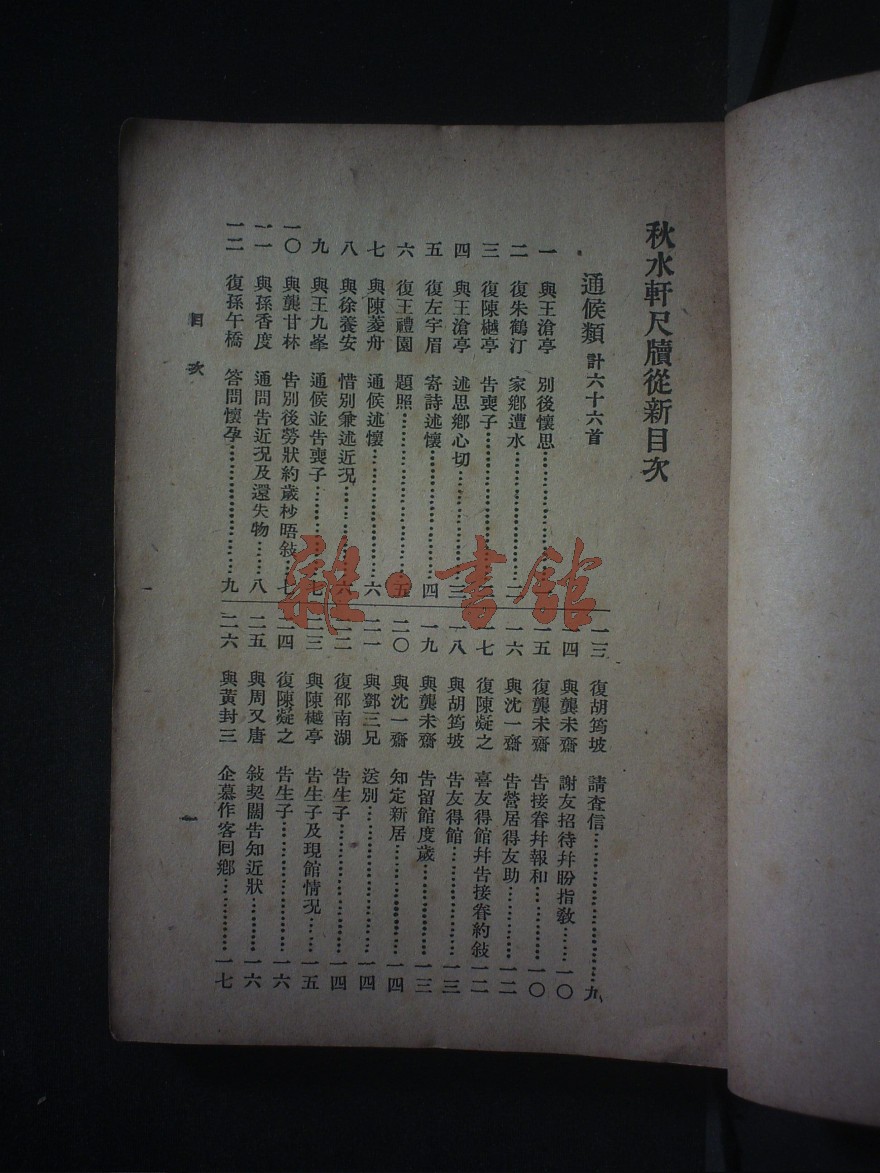 秋水軒尺牘從新目次
通候類 計六十六首
一 與王滄亭 別後懷思
二 復朱鶴汀 家鄉遭水
三 復陳樾亭 告喪子
四 與王滄亭 述思鄉心切 三
五 復左宇眉 寄詩述懷 四
六 復王禮園 題照 五
七 與陳菱舟 通候述懷 六
八 與徐養安 惜別兼述近況 六
九 與王九峯 通候並告喪子 七
一〇 與龔甘林 告別後勞狀約歲杪晤敍 七
一一 與孫香度 通問告近況及還失物 八
一二 復孫午橋 答問懷孕 九
一三 復胡筠坡 請查信 九
一四 與龔未齋 謝友招待幷盼指敎 一〇
一五 復龔未齋 告接眷幷報和 一〇
一六 與沈一齋 告營居得友助 一二
一七 復陳凝之 喜友得館幷告接眷約敍 一二
一八 與胡筠坡 告友得館 一三
一九 與龔未齋 告留館度歲 一三
二〇 與沈一齋 知定新居 一四
二一 與鄧三兄 送別 一四
二二 復邵南湖 告生子 一四
二三 與陳樾亭 告生子及現館情況 一五
二四 復陳凝之 告生子 一六
二五 與周又唐 敍契闊告知近狀 一六
二六 與黃封三 企慕作客回鄉 一七
目次
一
雜·書館